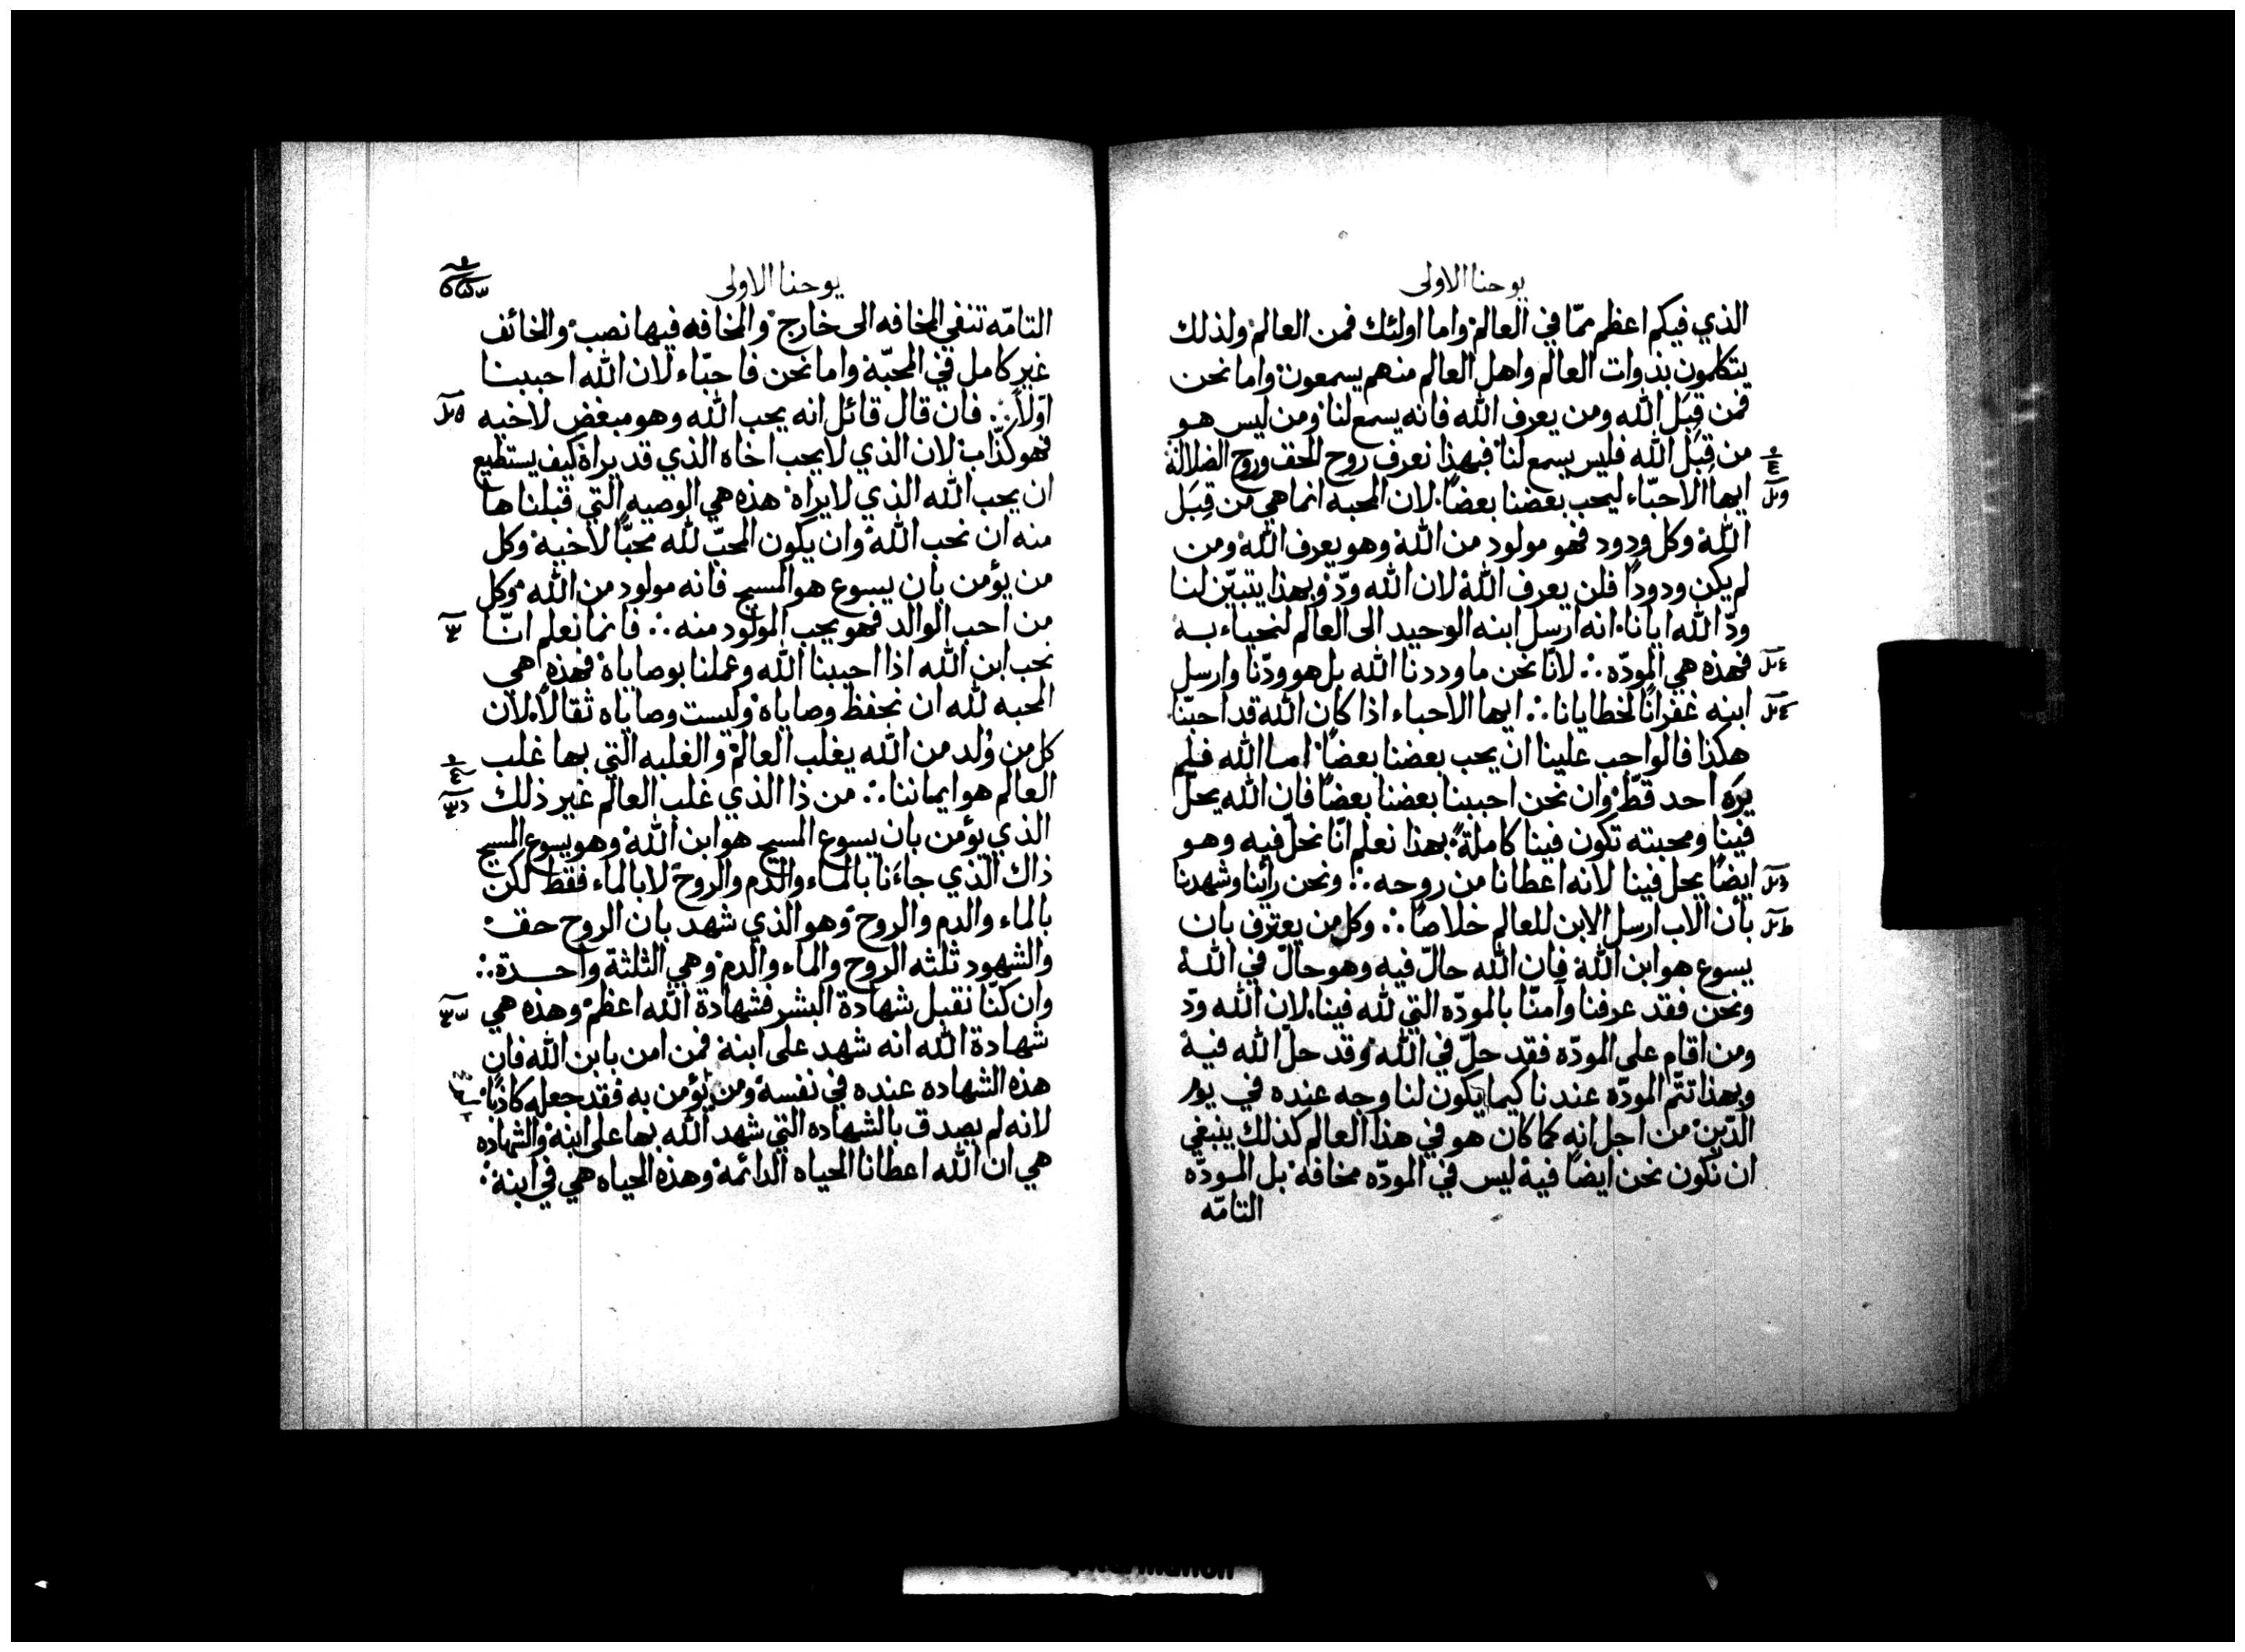 يوحنا الاولى
الذي فيكم اعظم ممّا في العالم واما اولئك فمن العالم ولذلك
يتكلمون بذوات العالم واهل العالم منهم يسمعون واما نحن
فمن قِبَل الله ومن يعرف الله فانه يسمع لنا ومن ليس هو
من قِبَل الله فليس يسمع لنا فبهذا نعرف روح الحق وروح الضلالة
ايها الاحبّاء ليحب بعضنا بعضا لان المحبه انما هي من قِبَل
الله وكل ودود فهو مولود من الله وهو يعرف الله ومن
لم يكن ودودًا فلن يعرف الله لان الله ودّ وبهذا يتبيّن لنا
ودّ الله ايانا انه ارسل ابنه الوحيد الى العالم لنحياء به
فهذه هي المودّه ∴ لانّا نحن ما وددنا الله بل هو ودّنا وارسل
ابنه غفرانًا لخطايانا ∴ ايها الاحباء اذا كان الله قد احبّنا
هكذا فالواجب علينا ان يحب بعضنا بعضًا اما الله فلم
يرَه احد قطّ وان نحن احببنا بعضنا بعضًا فان الله يحلّ
فينا ومحبته تكون فينا كاملةً بهذا نعلم انّا نحلّ فيه وهو
ايضًا يحل فينا لانه اعطانا من روحه ∴ ونحن رأينا وشهدنا
بأن الاب ارسل الابن للعالم خلاصًا ∴ وكل من يعترف بان
يسوع هو ابن الله فان الله حالّ فيه وهو حالّ في الله
ونحن فقد عرفنا وآمنّا بالمودّه التي لله فينا لان الله ودّ
ومن اقام على المودّه فقد حلّ في الله وقد حلّ الله فيه
وبهذا تتم المودّة عندنا كيما يكون لنا وجه عنده في يوم
الدّين من اجل انه كما كان هو في هذا العالم كذلك ينبغي
ان نكون نحن ايضًا فيه ليس في المودّه مخافة بل المودّه
التامّه
يوحنا الاولى
التامّه تنفي المخافه الى خارج والمخافه فيها نصب والخائف
غير كامل في المحبّة واما نحن فاحبّاء لان الله احببنا
اوّلاً ∴ فان قال قائل انه يحب الله وهو مبغض لاخيه
فهو كذّاب لان الذي لا يحب اخاه الذي قد يراه كيف يستطيع
ان يحب الله الذي لا يراه هذه هي الوصيه التي قبلناها
منه ان نحب الله وان يكون المحبّ لله محبًّا لاخيه وكل
من يؤمن بان يسوع هو المسيح فانه مولود من الله وكل
من احب الوالد فهو يحب المولود منه ∴ فانما نعلم انّا
نحب ابن الله اذا احببنا الله وعملنا بوصاياه فهذه هي
المحبه لله ان نحفظ وصاياه وليست وصاياه ثقالاً لان
كل من وُلد من الله يغلب العالم والغلبه التي بها غلب
العالم هو ايماننا ∴ من ذا الذي غلب العالم غير ذلك
الذي يؤمن بان يسوع المسيح هو ابن الله وهو يسوع المسيح
ذاك الذي جاءَنا بالماء والدم والروح لا بالماء فقط لكن
بالماء والدم والروح وهو الذي شهد بان الروح حق
والشهود ثلثه الروح والماء والدم وهي الثلثة واحدة ∴
وان كنّا نقبل شهادة البشر فشهادة الله اعظم وهذه هي
شهادة الله انه شهد على ابنه فمن امن بابن الله فان
هذه الشهاده عنده في نفسه ومن يؤمن به فقد جعله كاذبًا
لانه لم يصدق بالشهاده التي شهد الله بها على ابنه والشهاده
هي ان الله اعطانا الحياه الدائمة وهذه الحياه هي في ابنه